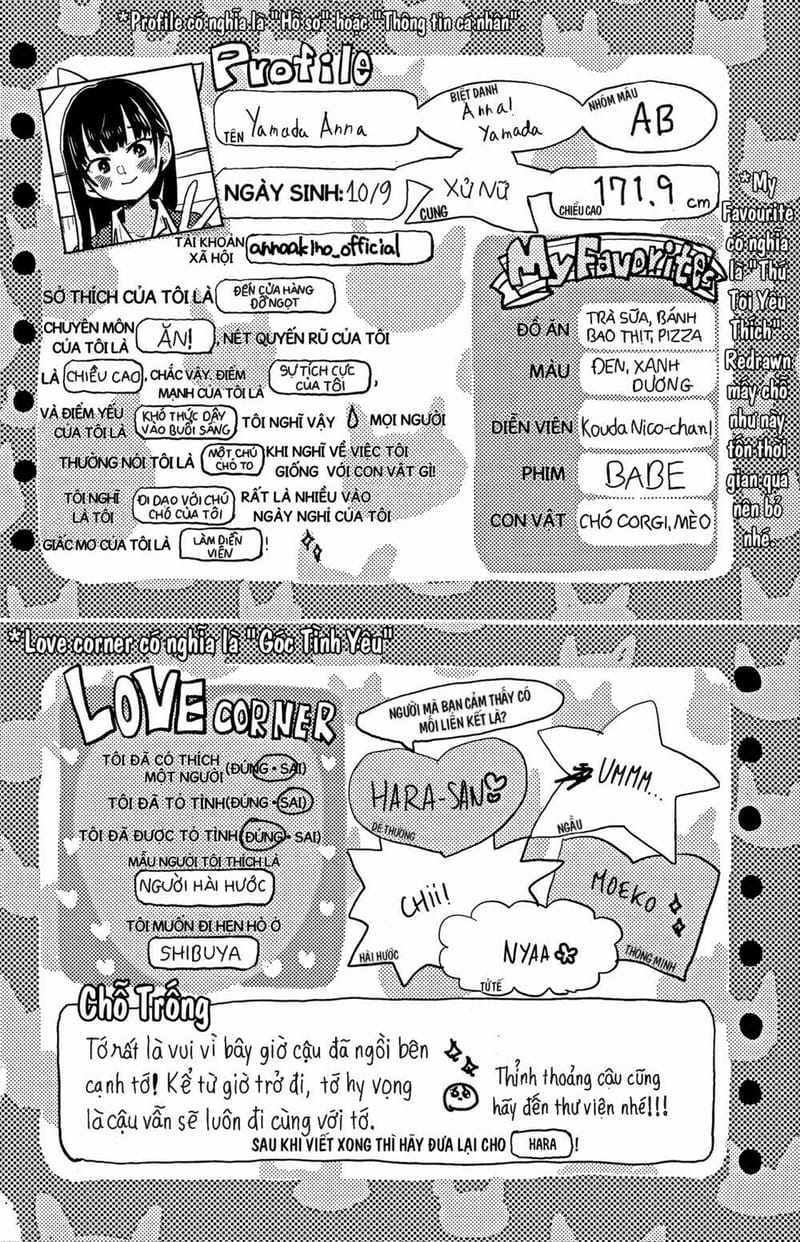 *Profile có nghĩa là "Hồ sơ" hoặc "Thông tin cá nhân".
Profile
TÊN Yamada Anna
BIỆT DANH
Anna!
Yamada
NHÓM MÁU
AB
NGÀY SINH: 10/9
CUNG XỬ NỮ
CHIỀU CAO 171.9 cm
TÀI KHOẢN
XÃ HỘI
annaakiho_official
SỞ THÍCH CỦA TÔI LÀ ĐẾN CỬA HÀNG
ĐỒ NGỌT
CHUYÊN MÔN
CỦA TÔI LÀ ĂN!, NÉT QUYẾN RŨ CỦA TÔI
LÀ CHIỀU CAO, CHẮC VẬY. ĐIỂM
MẠNH CỦA TÔI LÀ SỰ TÍCH CỰC
CỦA TÔI,
VÀ ĐIỂM YẾU
CỦA TÔI LÀ KHÓ THỨC DẬY
VÀO BUỔI SÁNG, TÔI NGHĨ VẬY MỌI NGƯỜI
THƯỜNG NÓI TÔI LÀ MỘT CHÚ
CHÓ TO KHI NGHĨ VỀ VIỆC TÔI
GIỐNG VỚI CON VẬT GÌ!
TÔI NGHĨ
LÀ TÔI ĐI DẠO VỚI CHÚ
CHÓ CỦA TÔI RẤT LÀ NHIỀU VÀO
NGÀY NGHỈ CỦA TÔI
GIẤC MƠ CỦA TÔI LÀ LÀM DIỄN
VIÊN !
My Favorites
ĐỒ ĂN TRÀ SỮA, BÁNH
BAO THỊT, PIZZA
MÀU ĐEN, XANH
DƯƠNG
DIỄN VIÊN Kouda Nico-chan!
PHIM BABE
CON VẬT CHÓ CORGI, MÈO
*My
Favourite
có nghĩa
là "Thứ
Tôi Yêu
Thích".
Redrawn
mấy chỗ
như này
tốn thời
gian quá
nên bỏ
nhé.
*Love corner có nghĩa là "Góc Tình Yêu"
LOVE CORNER
TÔI ĐÃ CÓ THÍCH
MỘT NGƯỜI (ĐÚNG • SAI)
TÔI ĐÃ TỎ TÌNH (ĐÚNG • SAI)
TÔI ĐÃ ĐƯỢC TỎ TÌNH (ĐÚNG • SAI)
MẪU NGƯỜI TÔI THÍCH LÀ
NGƯỜI HÀI HƯỚC
TÔI MUỐN ĐI HẸN HÒ Ở
SHIBUYA
NGƯỜI MÀ BẠN CẢM THẤY CÓ
MỐI LIÊN KẾT LÀ?
HARA-SAN
DỄ THƯƠNG
UMMM...
NGẦU
CHII!
HÀI HƯỚC
MOEKO
THÔNG MINH
NYAA
TỬ TẾ
Chỗ Trống
Tớ rất là vui vì bây giờ cậu đã ngồi bên
cạnh tớ! Kể từ giờ trở đi, tớ hy vọng
là cậu vẫn sẽ luôn đi cùng với tớ.
Thỉnh thoảng cậu cũng
hãy đến thư viện nhé!!!
SAU KHI VIẾT XONG THÌ HÃY ĐƯA LẠI CHO HARA !